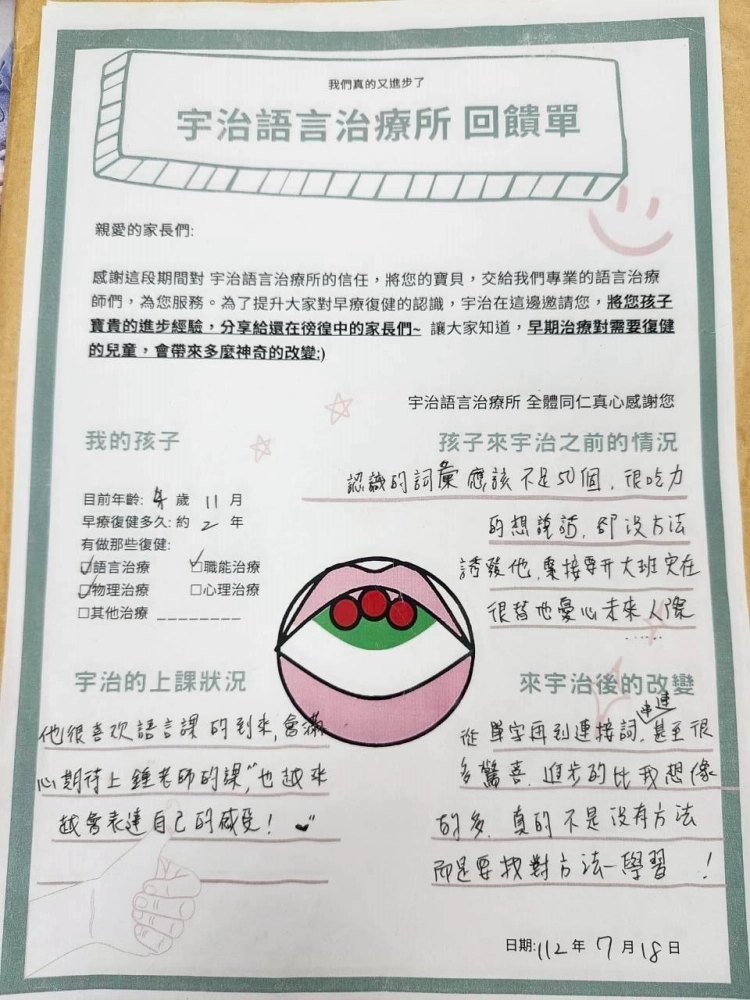 我們真的又進步了
宇治語言治療所 回饋單
親愛的家長們:
感謝這段期間對 宇治語言治療所的信任，將您的寶貝，交給我們專業的語言治療
師們，為您服務。為了提升大家對早療復健的認識，宇治在這邊邀請您，將您孩子
寶貴的進步經驗，分享給還在徬徨中的家長們~ 讓大家知道，早期治療對需要復健
的兒童，會帶來多麼神奇的改變:)
宇治語言治療所 全體同仁真心感謝您
我的孩子
目前年齡: 歲 11 月
早療復健多久: 約 2 年
有做那些復健:
☑語言治療 ☑職能治療
☑物理治療 □心理治療
□其他治療 ________
孩子來宇治之前的情況
認識的詞彙應該不足50個，很吃力
的想說話，卻沒方法
誘發他，要接要升大班實在
很替他憂心未來人際
......
宇治的上課狀況
他很喜欢語言課的到來，會滿
心期待上"鍾老師的課"，也越來
越會表達自己的感受！
來宇治後的改變
從單字再到連接詞串連，甚至很
多驚喜，進步的比我想像
的多，真的不是沒有方法
而是要找對方法學習！
日期:112年 7月18日